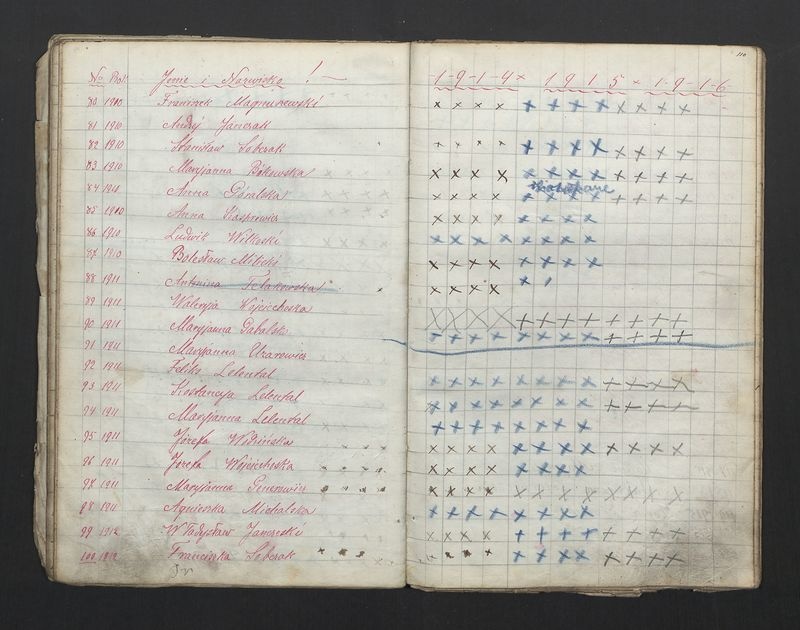 110
No Rok Jmie i Nazwisko ! 1914 × 1915 × 1916
80 1910 Franciszek Magnuszewski
81 1910 Andrzj Janczak
82 1910 Stanisław Soberak
83 1910 Maryjanna Bukowska
84 1911 Anna Góralska
85 1910 Anna Kasprowicz
86 1910 Ludwik Witkoski
87 1910 Bolesław Milicki
88 1911 Antonina
89 1911 Waleryja Wojciechoska
90 1911 Maryjanna
91 1911 Maryjanna
92 1911 Feliks Lelental
93 1911 Kostancyja Lelental
94 1911 Maryjanna Lelental
95 1911 Józefa
96 1911 Józefa Wojciechoska
97 1911 Maryjanna
98 1911 Agnieszka Michalska
99 1912 Władysław
100 1912 Franciszka Soberak